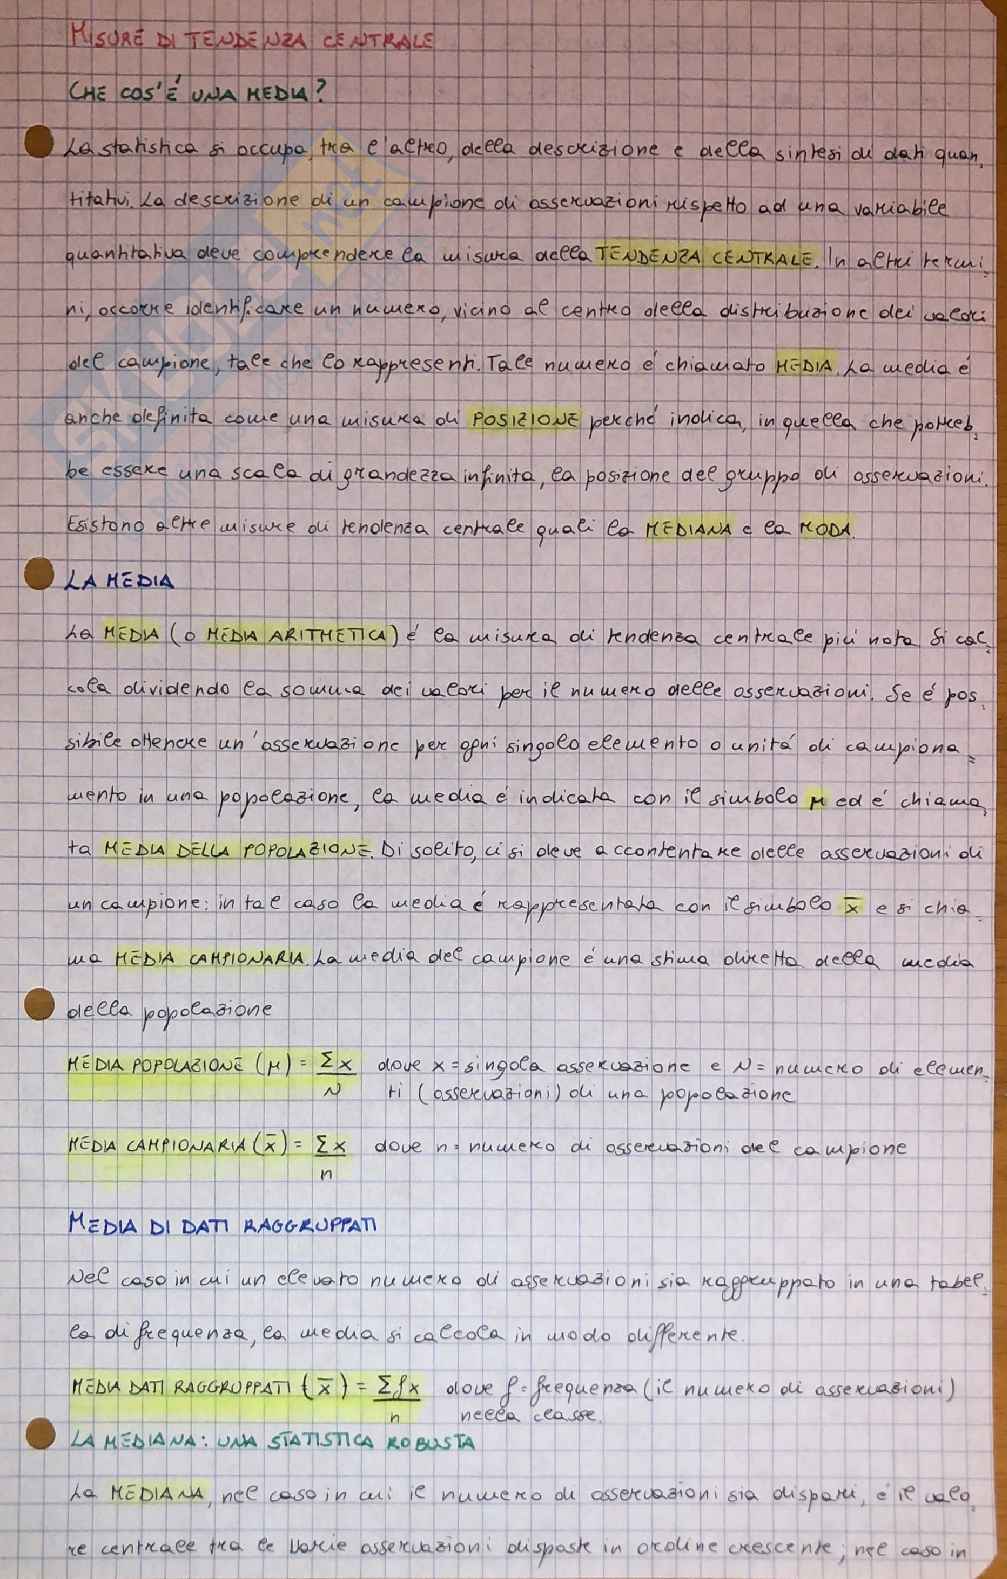 MISURE DI TENDENZA CENTRALE
CHE COS'É UNA MEDIA?
La statistica si occupa, tra l'altro, della descrizione e della sintesi di dati quan.
titativi. La descrizione di un campione di osservazioni rispetto ad una variabile
quantitativa deve comprendere la misura della TENDENZA CENTRALE. In altri termi.
ni, occorre identificare un numero, vicino al centro della distribuzione dei valori
del campione, tale che lo rappresenti. Tale numero é chiamato MEDIA. La media é
anche definita come una misura di POSIZIONE perché indica, in quella che potreb.
be essere una scala di grandezza infinita, la posizione del gruppo di osservazioni.
Esistono altre misure di tendenza centrale quali la MEDIANA e la MODA.
LA MEDIA
La MEDIA (O MEDIA ARITMETICA) é la misura di tendenza centrale piú nota. Si cal.
cola dividendo la somma dei valori per il numero delle osservazioni. Se é pos.
sibile ottenere un'osservazione per ogni singolo elemento o unitá di campiona=
mento in una popolazione, la media é indicata con il simbolo μ ed é chiama.
ta MEDIA DELLA POPOLAZIONE. Di solito, ci si deve accontentare delle osservazioni di
un campione: in tal caso la media é rappresentata con il simbolo x̄ e si chia.
ma MEDIA CAMPIONARIA. La media del campione é una stima diretta della media
della popolazione
MEDIA POPOLAZIONE (μ) = Σx dove x = singola osservazione e N = numero di elemen.
N ti (osservazioni) di una popolazione
MEDIA CAMPIONARIA (x̄) = Σx dove n = numero di osservazioni del campione
n
MEDIA DI DATI RAGGRUPPATI
Nel caso in cui un elevato numero di osservazioni sia raggruppato in una tabel.
la di frequenza, la media si calcola in modo differente.
MEDIA DATI RAGGRUPPATI (x̄) = Σfx dove f = frequenza (il numero di osservazioni)
n nella classe.
LA MEDIANA: UNA STATISTICA ROBUSTA
La MEDIANA, nel caso in cui il numero di osservazioni sia dispari, é il valo.
re centrale tra le varie osservazioni disposte in ordine crescente; nel caso in